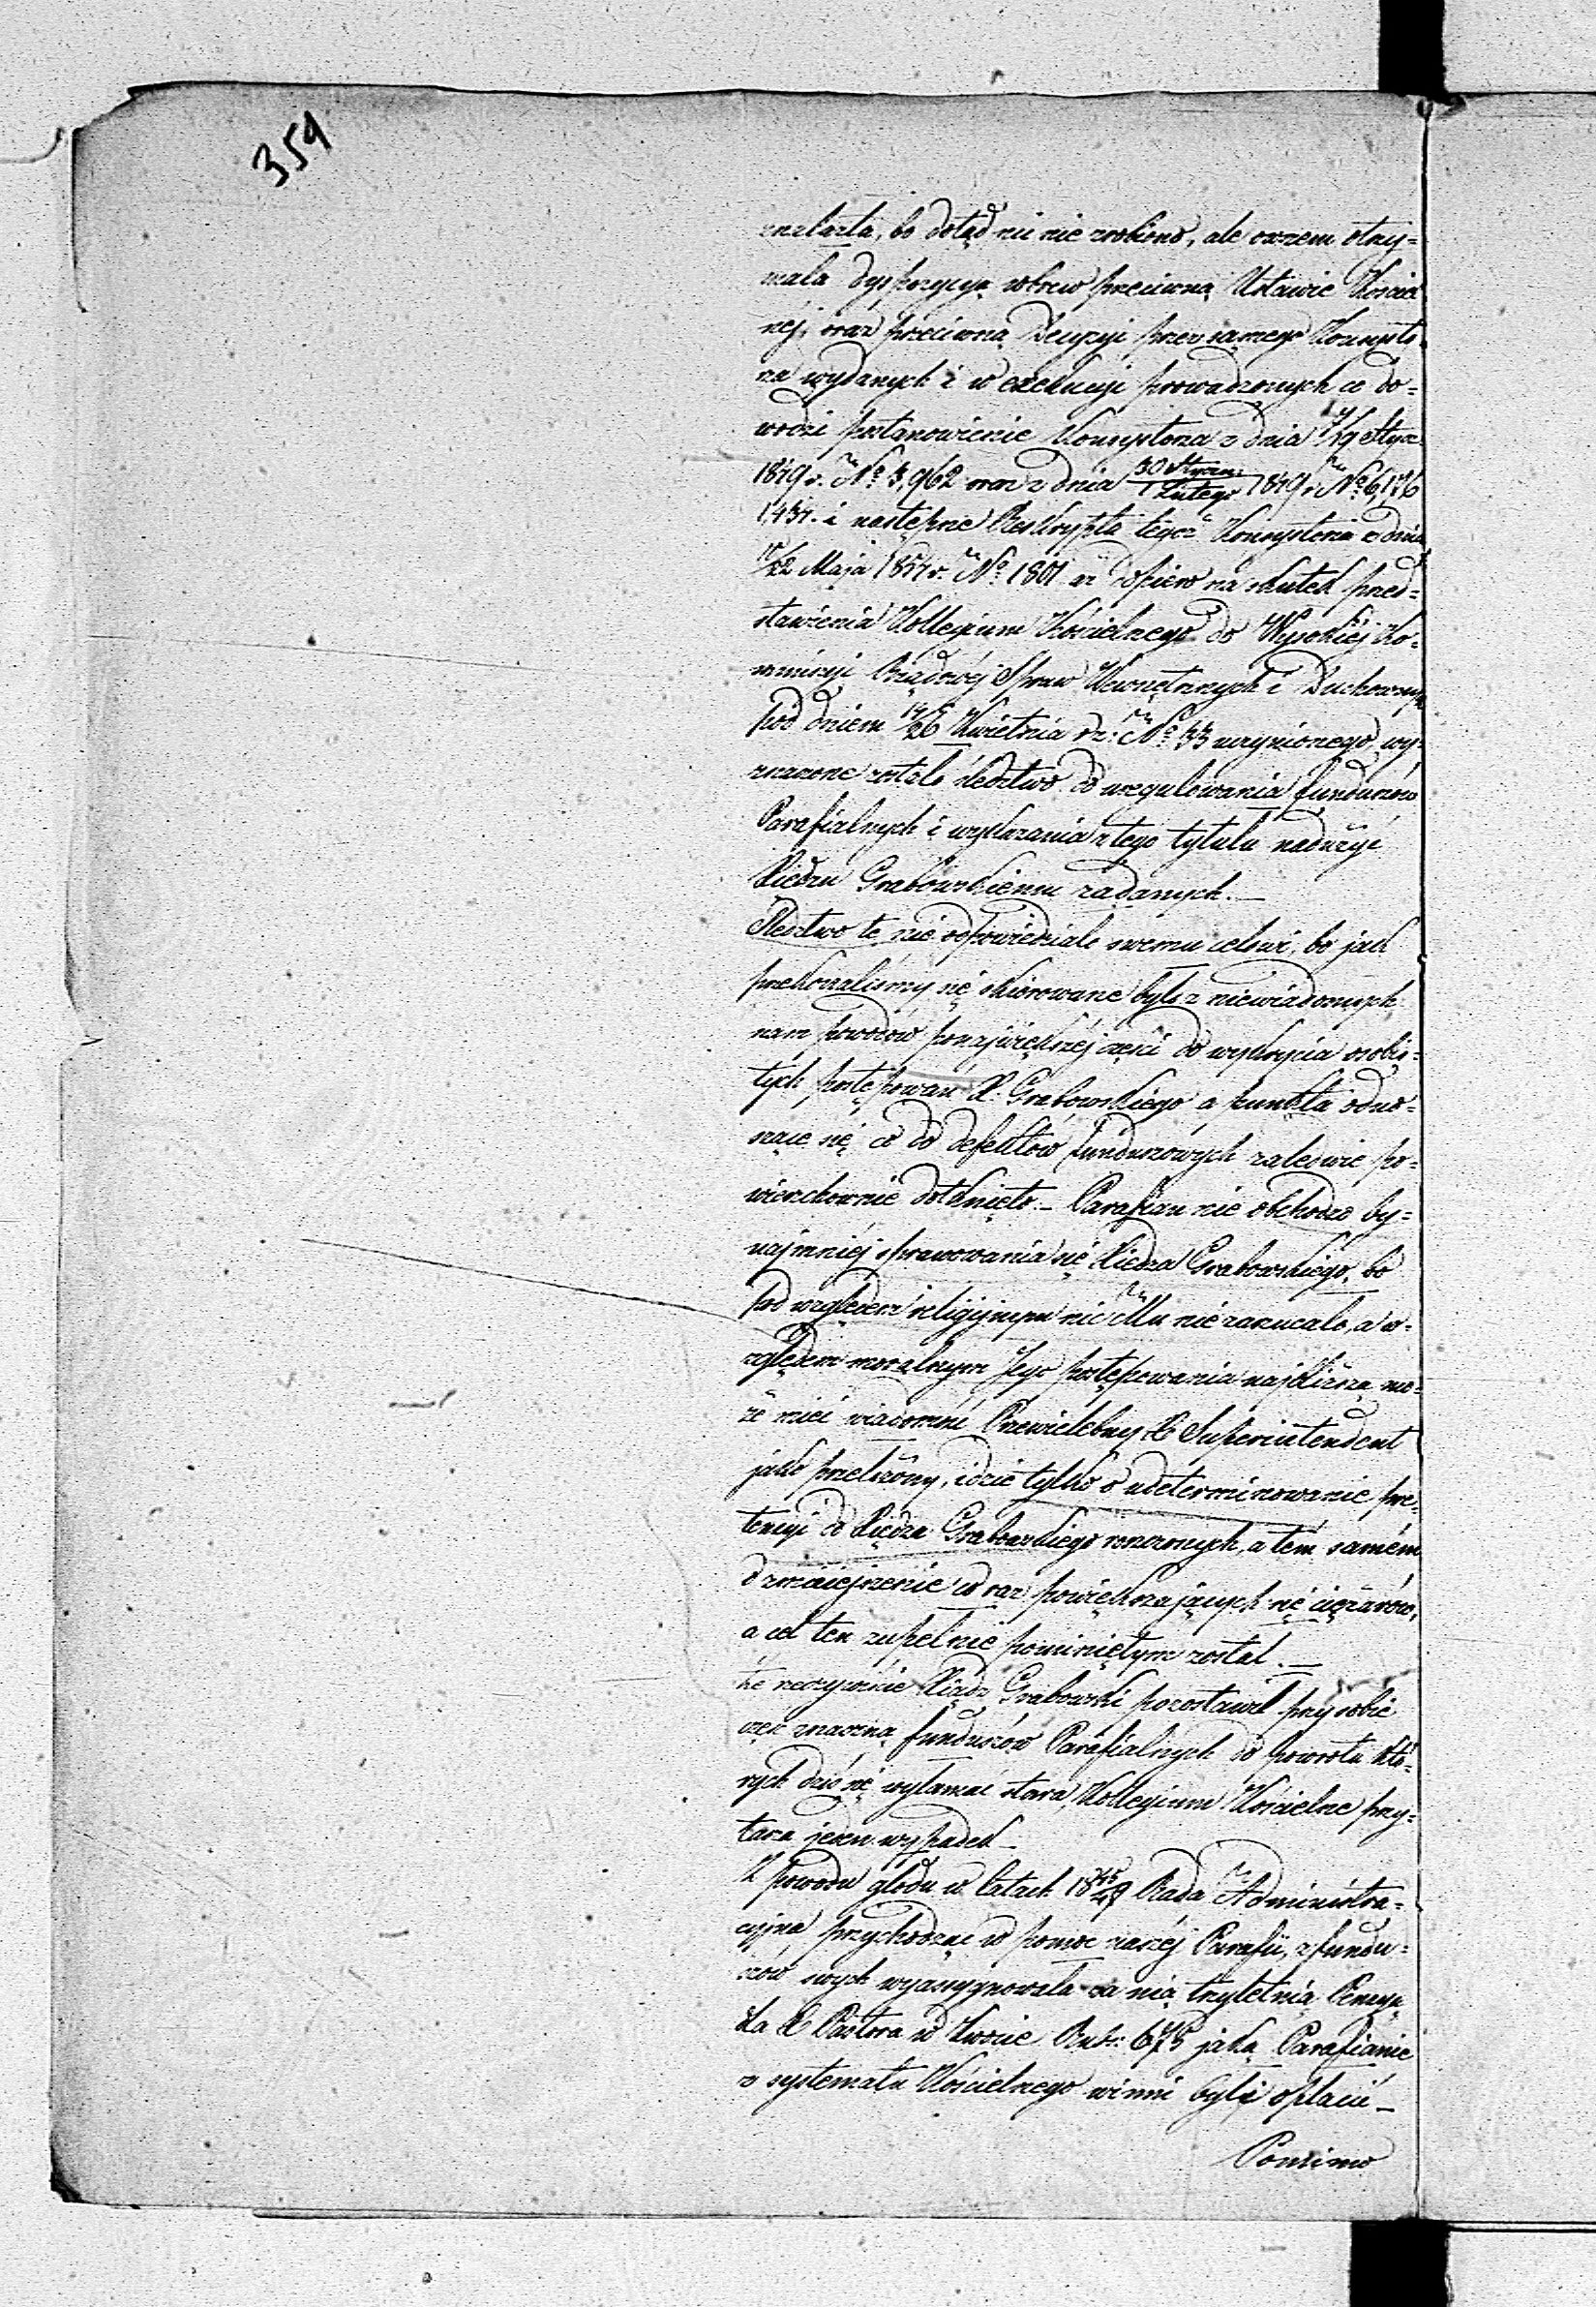 359
znalazła, bo dotąd nic nie zrobiono, ale owszem otrzy=
mała dyspozycyą wbrew przeciwną Ustawie Kościel
nej, oraz przeciwną Decyzyi przez samego Konsysto
rza wydanych i w exekucyi prowadzonych co do=
wodzi postanowienie Konsystorza z dnia 7/19 Stycz.
1849 r. No 3,962 oraz z dnia 30 Styczn:/1 Lutego 1849 r No 6,176
1,434. i następne Reskrypta tegoż Konsystorza z dnia
/22 Maja 1854 r. No 1801 aż dopiero na skutek przed=
stawienia Kollegium Kościelnego do Wysokiéj Ko=
missyi Rządowéj Spraw Wewnętrznych i Duchownych
pod dniem 14/26 Kwietnia r.z: No 33 uczynionego, wy=
znaczone zostało śledztwo do uregulowania funduszów
Parafialnych i wykazania z tego tytułu nadużyć
Xiędzu Grabowskiemu zadanych. —
Śledztwo te nie odpowiedziało swemu celowi, bo jak
przekonaliśmy się skierowane było z niewiadomych
nam powodów po największéj części do wykrycia osobis=
tych postępowań X. Grabowskiego a punkta odno=
szące się co do defektów funduszowych zaledwie po=
wierzchownie dotknięto. — Parafian nie obchodzo by=
najmniéj sprawowania się Xiędza Grabowskiego, bo
pod względem religijnym nic Mu nie zarzucało, a w=
zględem moralnym Jego postępowania najbliższą mo=
że mieć wiadomość Przewielebny X Superintendent
jako przełożony, idzie tylko o udeterminowanie pre=
tensyi do Xiędza Grabowskiego roszczonych, a tém samém
o zmniejszenie coraz powiększających się ciężarów,
a cel ten zupełnie pominiętym został. —
że rzeczywiście Xiądz Grabowski pozostawił przy sobie
część znaczną funduszów Parafialnych do powrotu któ=
rych dziś się wyłamać stara, Kollegium Kościelne przy=
tacza jeden wypadek —
Z powodu głodu w latach 1845/49 Rada Administra=
cyjna przychodząc w pomoc naszéj Parafii, z fundu=
szów swych wyassygnowała za nią trzyletnią Pensyą
dla X Pastora w kwocie Rubs: 675 jaką Parafianie
z systematu Kościelnego winni byli opłacić —
Pomimo